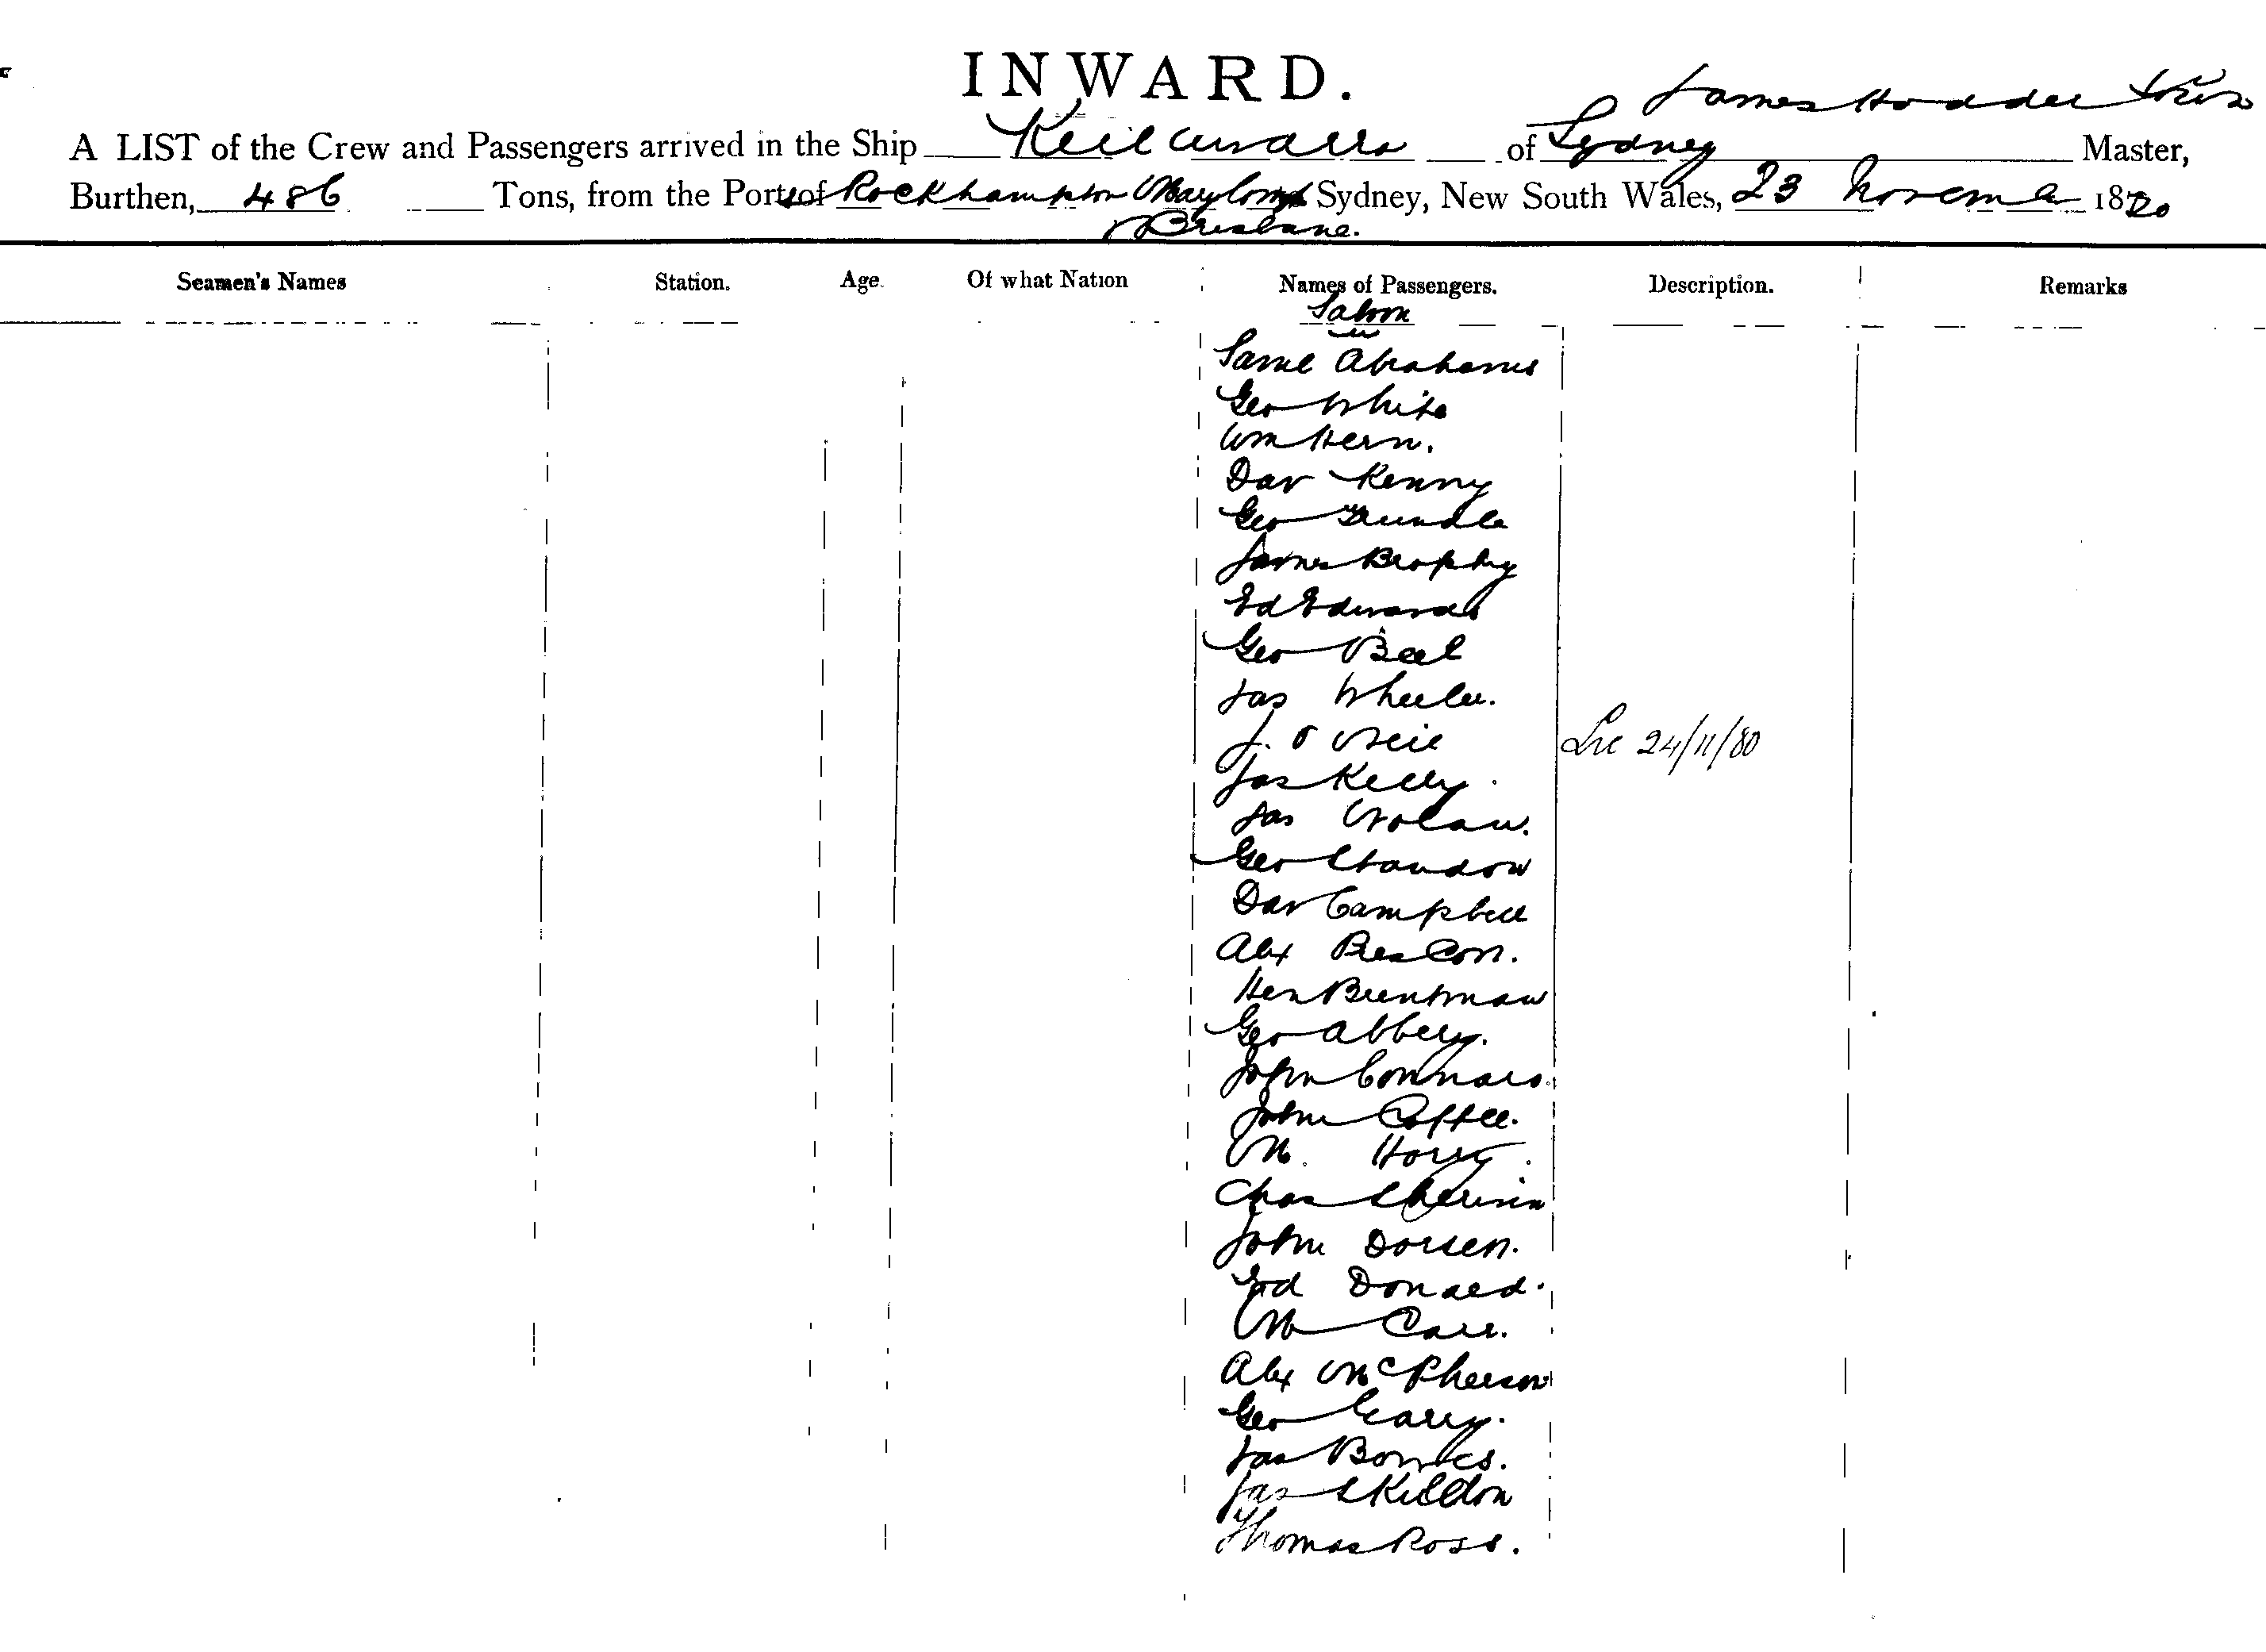 INWARD.
James Hodder
A LIST of the Crew and Passengers arrived in the Ship Keilawarra of Sydney Master,
Burthen, 486 Tons, from the Ports of Rockhampton Sydney, New South Wales, 23 November 1880
Brisbane.
Seamen's Names Station. Age. Of what Nation Names of Passengers. Description. Remarks
Saloon
Saml Abrahams
Geo White
Wm Hern.
Dav Kenny
Geo Grundle
James Brophy
Ed Edwards
Geo Beel
Jas Wheeler.
J. O Neil 24/11/80
Jas Kelly.
Jas Nolan.
Geo
Dav Campbell
Alex
Hen
Geo Abbery.
John Connars.
John Coffee.
M.
Chas
John Dorsen.
Ed Donald.
M Carr.
Alex McPherson
Geo
Jas
Jas Skeldon
Thomas Ross.